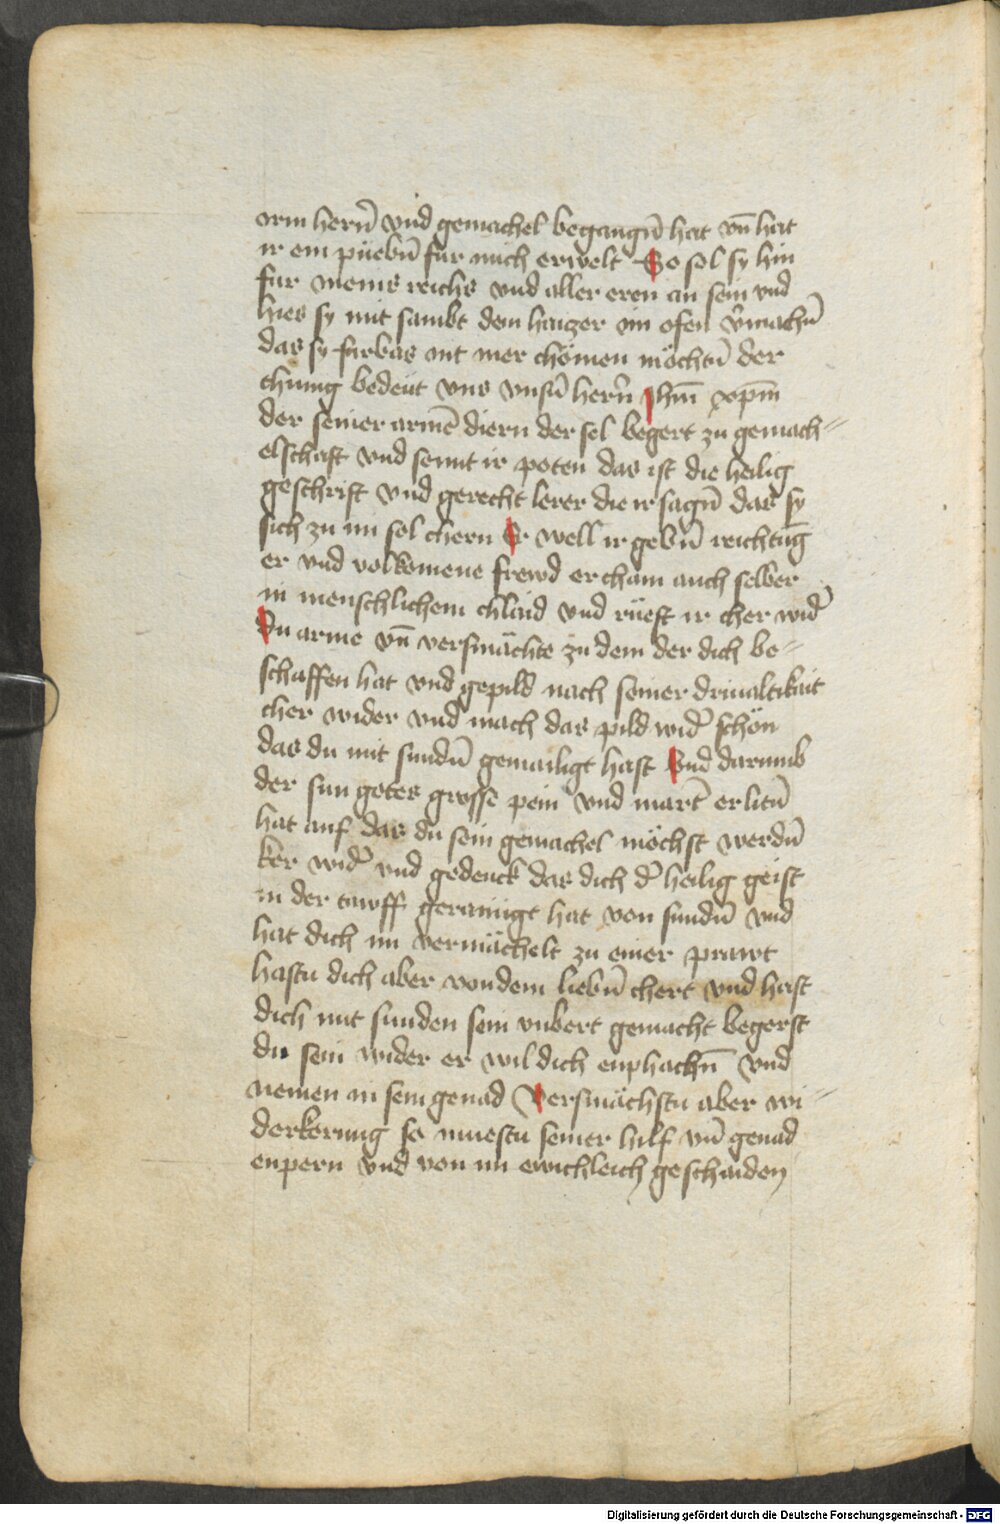 irm herñ vnd gemachel begangñ hat vñ hat
ir ein püebñ fur mich erwelt So sol sy hin
fur meins reichs vnd aller eren an sein vnd
hies sy mit sambt dem haizer im ofen v̄machñ
das sy furbas nit mer chömen möchtñ der
chunig bedeüt vns vnsñ herñ Jhm̄ xp̄m
der seiner armē diern der sel begert zu gemach=
elschaft vnd sennt ir poten das ist die heilig
geschrift vnd gerecht lerer die ir sagñ das sy
sich zu im sol chern Er well ir gebñ reichtūg
er vnd volkomene frewd er cham auch selber
in menschlichem chlaid vnd rüeft ir cher wid̄
Du arme vñ versmächte zu dem der dich be=
schaffen hat vnd gepild nach seiner driualtikait
cher wider vnd mach das pild wid̄ schön
das du mit sundñ gemailigt hast Vnd darumb
der sun gotes grosse pein vnd mart̄ erlitñ
hat auf das du sein gemachel möchst werdñ
ker wid̄ vnd gedenck das dich d̄ heilig geist
in der tawff gerainigt hat von sundñ vnd
hat dich im vermächelt zu einer prawt
hastu dich aber von dem liebñ chert vnd hast
dich mit sunden sein vnbert gemacht begerst
du sein wider er wil dich enphachñ vnd
nemen in sein genad Versmächstu aber wi=
derkerung so muestu seiner hilf vñ genad
enpern vnd von im ewichleich geschaiden
Digitalisierung gefördert durch die Deutsche Forschungsgemeinschaft - DFG